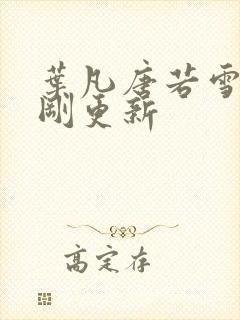 葉凡唐若雪
剛更新
高定存